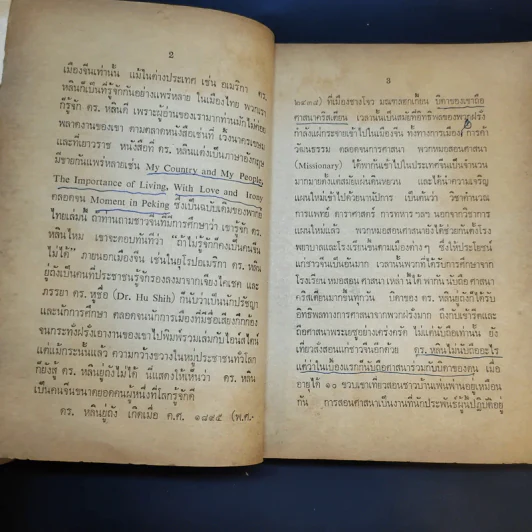 2
เมืองจีนเท่านั้น แม้ในต่างประเทศ เช่น อเมริกา ดร.
หลินก็เป็นที่รู้จักกันอย่างแพร่หลาย ในเมืองไทย พวกเรา
ก็รู้จัก ดร. หลินดี เพราะผู้อ่านของเรามากท่านมักไม่ค่อย
พลาดงานของเขา ตามตลาดหนังสือเช่นที่ เวิ้งนาครเขษม
และที่เยาวราช หนังสือที่ ดร. หลินแต่งเป็นภาษาอังกฤษ
มีขายกันแพร่หลายเช่น My Country and My People,
The Importance of Living, With Love and Irony
ตลอดจน Moment in Peking ซึ่งเป็นฉบับเดิมของพากย์
ไทยเล่มนี้ ถ้าท่านถามชาวจีนที่มีการศึกษาว่า เขารู้จัก ดร.
หลินไหม เขาจะตอบทันทีว่า "ถ้าไม่รู้จักก็คงเป็นคนจีน
ไม่ได้" ภายนอกเมืองจีน เช่นในยุโรปอเมริกา ดร. หลิน
ยู่ถังเป็นคนที่ประชาชนรู้จักรองลงมาจากเจียงไคเชค และ
ภรรยา ดร. หูชื่อ (Dr. Hu Shih) ก็นับว่าเป็นนักปรัชญา
และนักการศึกษา ตลอดจนนักการเมืองที่มีชื่อเสียงก้อง
จนกระทั่งฝรั่งเอางานของเขาไปพิมพ์รวมเล่มกับไอน์สไตน์
แต่แม้กระนั้นแล้ว ความกว้างขวางในหมู่ประชาชนทั่วโลก
ก็ยังสู้ ดร. หลินยู่ถังไม่ได้ นี่แสดงให้เห็นว่า ดร. หลิน
เป็นคนจีนขนาดยอดคนผู้หนึ่งที่โลกรู้จักดี
ดร. หลินยู่ถัง เกิดเมื่อ ค.ศ. ๑๘๙๕ (พ.ศ.-
3
๒๔๓๘) ที่เมืองชางโจว มณฑลฮกเกี้ยน บิดาของเขาถือ
ศาสนาคริสเตียน เวลานั้นเป็นสมัยที่อิทธิพลของพวกฝรั่ง
กำลังแผ่กระจายเข้าไปในเมืองจีน ทั้งทางการเมือง การค้า
วัฒนธรรม ตลอดจนการศาสนา พวกหมอสอนศาสนา
(Missionary) ได้พากันเข้าไปในประเทศจีนเป็นจำนวน
มากมายตั้งแต่สมัยแผ่นดินหยวน และได้นำความเจริญ
แผนใหม่เข้าไปด้วยนานัปการ เป็นต้นว่า วิชาคำนวณ
การแพทย์ ดาราศาสตร์ การทหาร ฯลฯ นอกจากวิชาการ
แผนใหม่แล้ว พวกหมอสอนศาสนายังได้ช่วยกันตั้งโรง
พยาบาลและโรงเรียนขึ้นตามเมืองต่าง ๆ ซึ่งให้ประโยชน์
แก่ชาวจีนเป็นอันมาก เวลานั้นพวกที่ได้รับการศึกษาจาก
โรงเรียน หมอสอน ศาสนา เหล่า นี้ได้ พากัน นับถือ ศาสนา
คริสเตียนมากขึ้นทุกวัน บิดาของ ดร. หลินยู่ถังก็ได้รับ
อิทธิพลทางการศาสนาจากพวกฝรั่งมาก ถึงกับเข้ารีตและ
ถือศาสนาพระเยซูอย่างเคร่งครัด ไม่แต่นับถือเท่านั้น ยัง
เที่ยวสั่งสอนแก่ชาวจีนอีกด้วย ดร. หลินไม่นับถืออะไร
แต่ว่าในเบื้องแรกก็นับถือศาสนาร่วมกับบิดาของตน เมื่อ
อายุได้ ๑๐ ขวบเขาเที่ยวสอนชาวบ้านเพ่นพ่านอยู่เหมือน
กัน การสอนศาสนาเป็นงานที่นักประพันธ์ผู้นี้ปฏิบัติอยู่